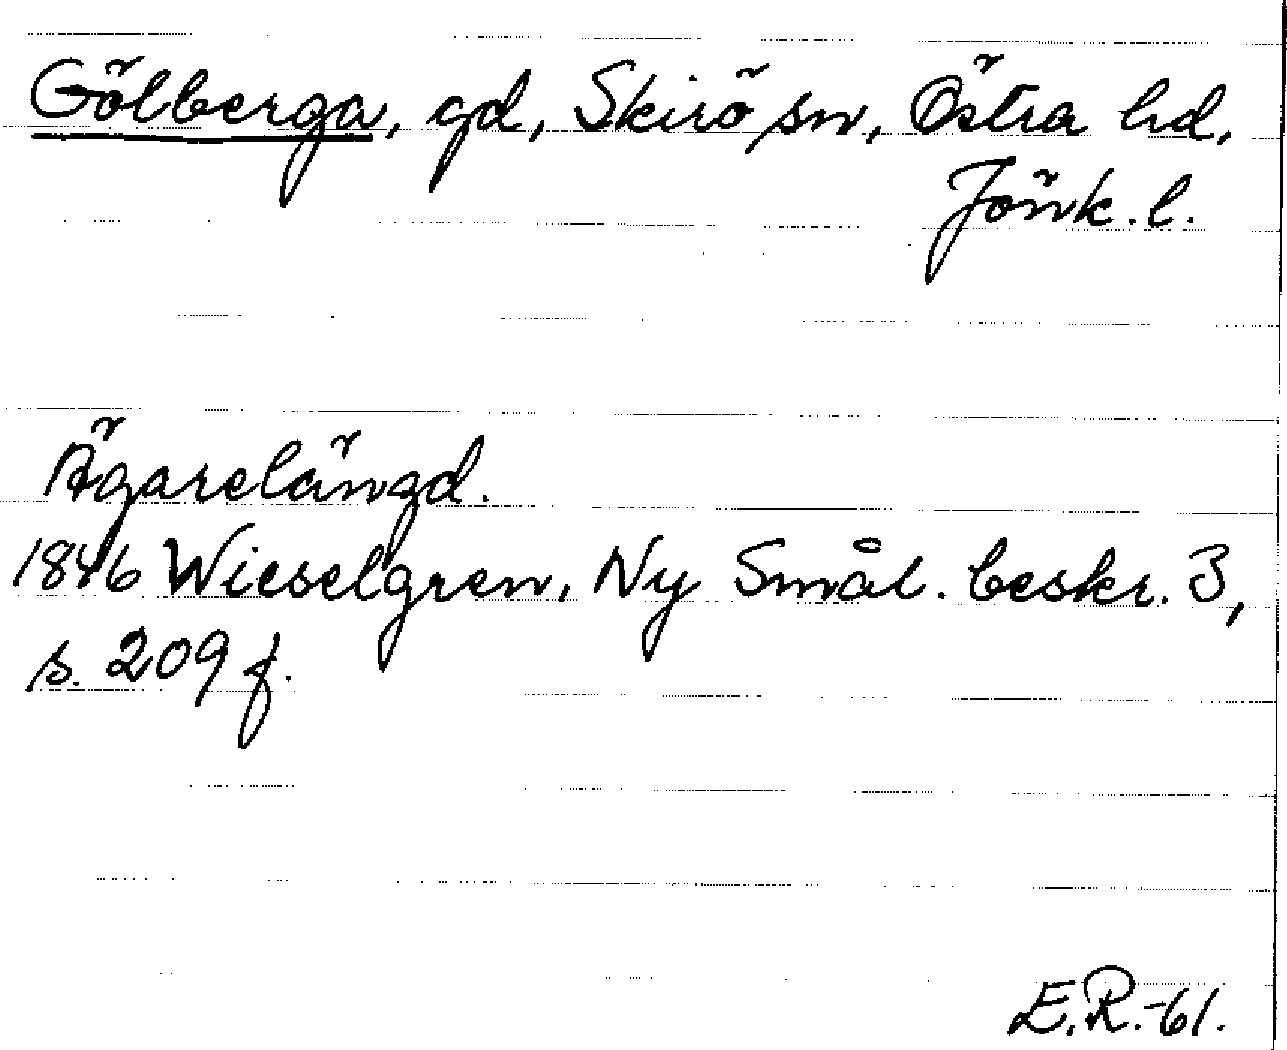 Gölberga, gd, Skirö sn, Östra hd,
Jönk. l.
Ägarelängd.
1846 Wieselgren, Ny Smål. beskr. 3,
s. 209 f.
E.R.-61.